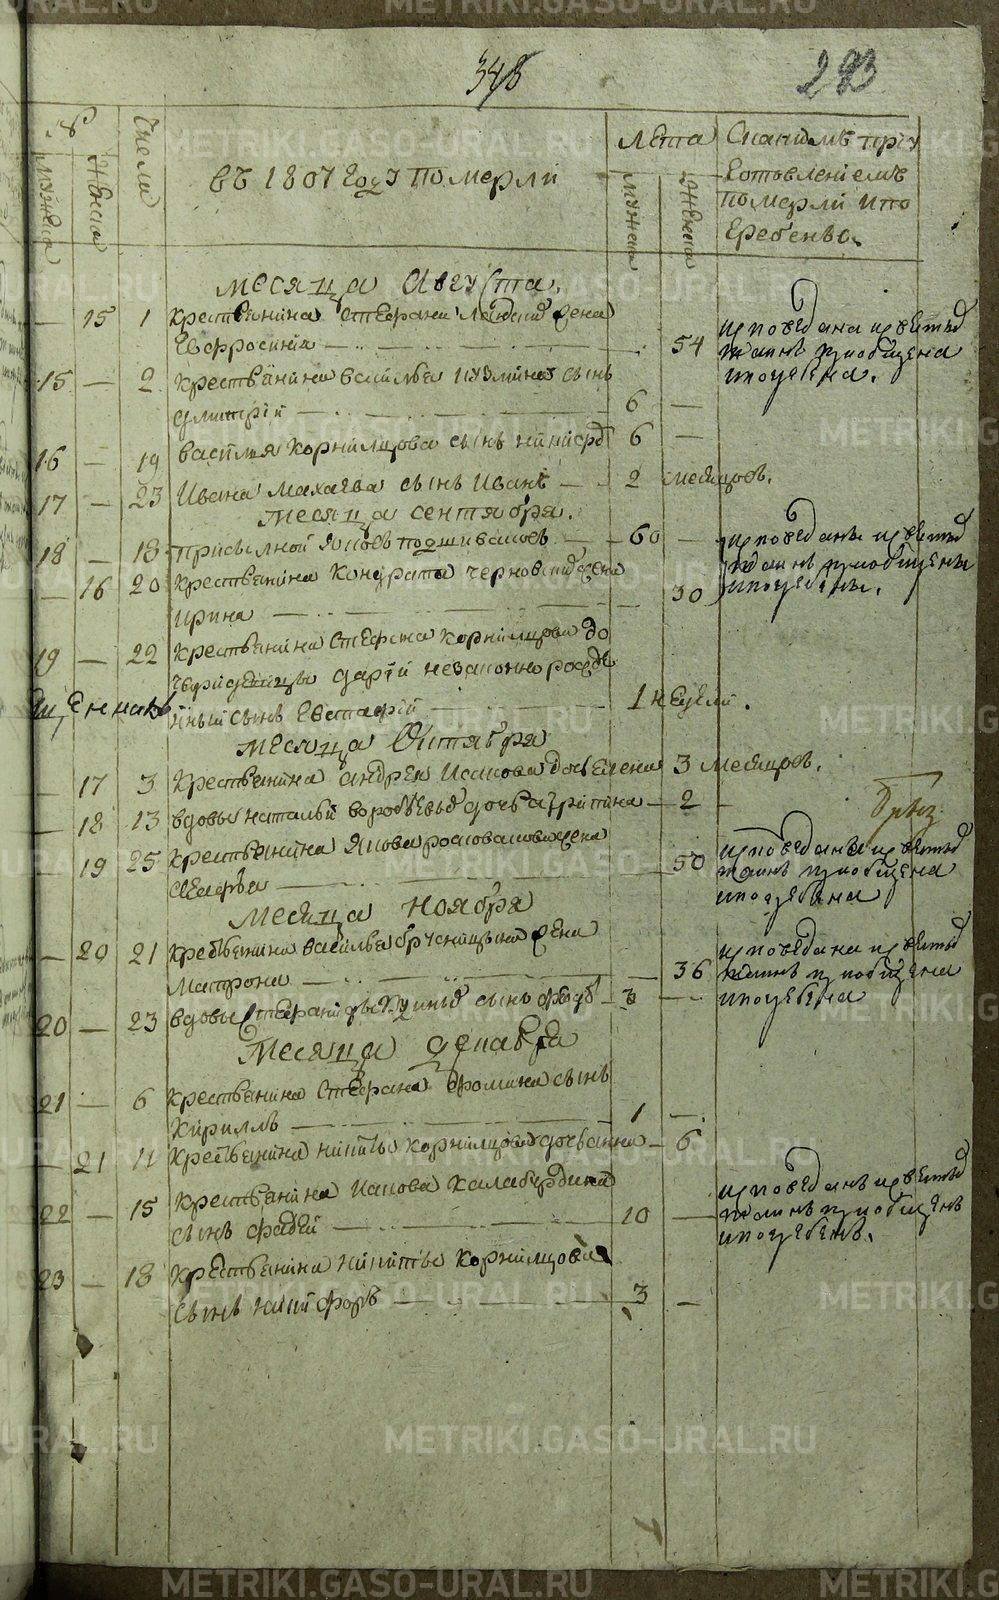 348
293
№
мужска
Женска
Числа
въ 1807 Году померли
Лета
мужска
Женска
Скакимъ приу
готовлениемъ
померли и по
гребены.
месяца августа.
— 15 1 крестьянина Стефана жена
Евфросиния — 54
исповедана и святыхъ
таинъ приобщена
и погребена.
15 — 2 крестьянина василья кузмина сынъ
дмитрий — 6 —
16 — 19 василья корнильцова сынъ 6 —
17 — 23 Ивана Махаева сынъ Иванъ — 2 месяцовъ.
месяца сентября.
18 — 18 Яковъ подшиваловъ — 60 —
исповеданы и святыхъ
таинъ приобщены
и погребены.
— 16 20 крестьянина кондрата жена
ирина — 30
19 — 22 крестьянина Стефана корнильцова до
чери девицы дарьи незаконно рожде
нный сынъ Евстафий — 1 недели.
месяца Октября
— 17 3 крестьянина андрея Исакова дочь елена 3 месяцовъ.
— 18 13 вдовы натальи воробьевой дочь — 2 —
— 19 25 крестьянина Якова жена
— 50
исповедана и святыхъ
таинъ приобщена
и погребена
месяца Ноября
— 20 21 крестьянина василья брусницына жена
матрона — 36
исповедана и святыхъ
таинъ приобщена
и погребена
20 — 23 вдовы сынъ — 3 —
Месяца декабря
21 — 6 крестьянина Стефана Фомина сынъ
Кириллъ — 1 —
— 21 11 крестьянина никиты корнильцова дочь анна — 6
22 — 15 крестьянина Иакова калабердина
сынъ фадей — 10 —
исповеданъ и святыхъ
таинъ приобщенъ
и погребенъ.
23 — 18 крестьянина никиты корнильцова
сынъ никифоръ — 3 —
METRIKI.GASO-URAL.RU